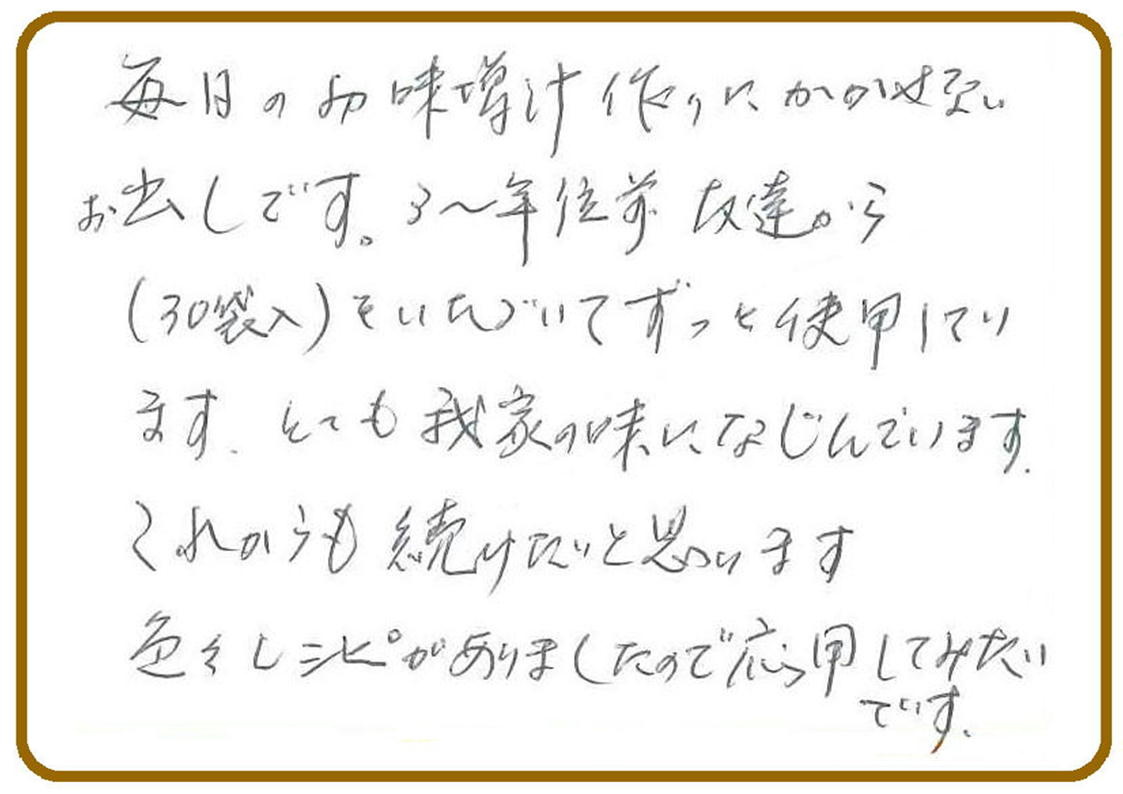 毎日のお味噌汁作りにかかせない
お出しです。3〜年位前 友達から
(30袋入)をいただいてずっと使用してい
ます. とても我家の味になじんでいます.
これからも続けたいと思います
色々レシピがありましたので応用してみたい
です.